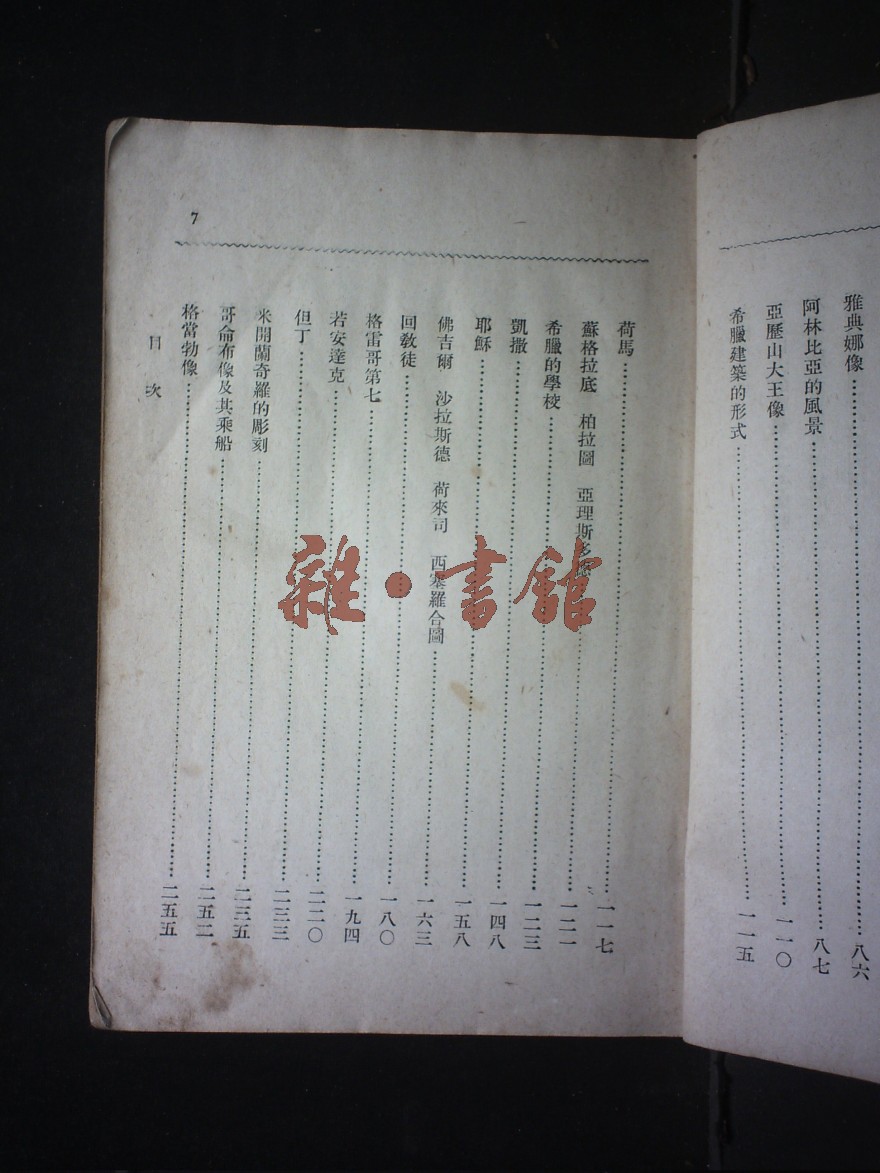 雅典娜像……………………八六
阿林比亞的風景……………………八七
亞歷山大王像……………………一一〇
希臘建築的形式……………………一一五
7
荷馬……………………一一七
蘇格拉底　柏拉圖　亞理斯多德……………………一二一
希臘的學校……………………一二三
凱撒……………………一四八
耶穌……………………一五八
佛吉爾　沙拉斯德　荷來司　西塞羅合圖……………………一六三
回教徒……………………一八〇
格雷哥第七……………………一九四
若安達克……………………二二〇
但丁……………………二三三
米開蘭奇羅的彫刻……………………二三五
哥侖布像及其乘船……………………二五二
格當勃像……………………二五五
目次
雜·書館